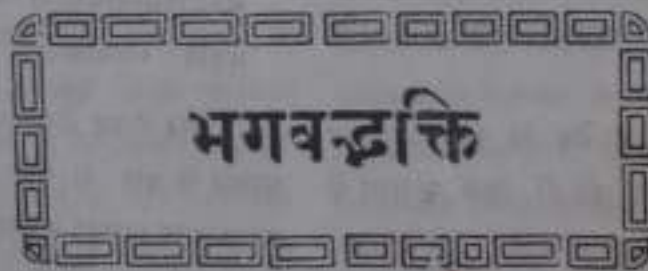 भगवद्भक्ति